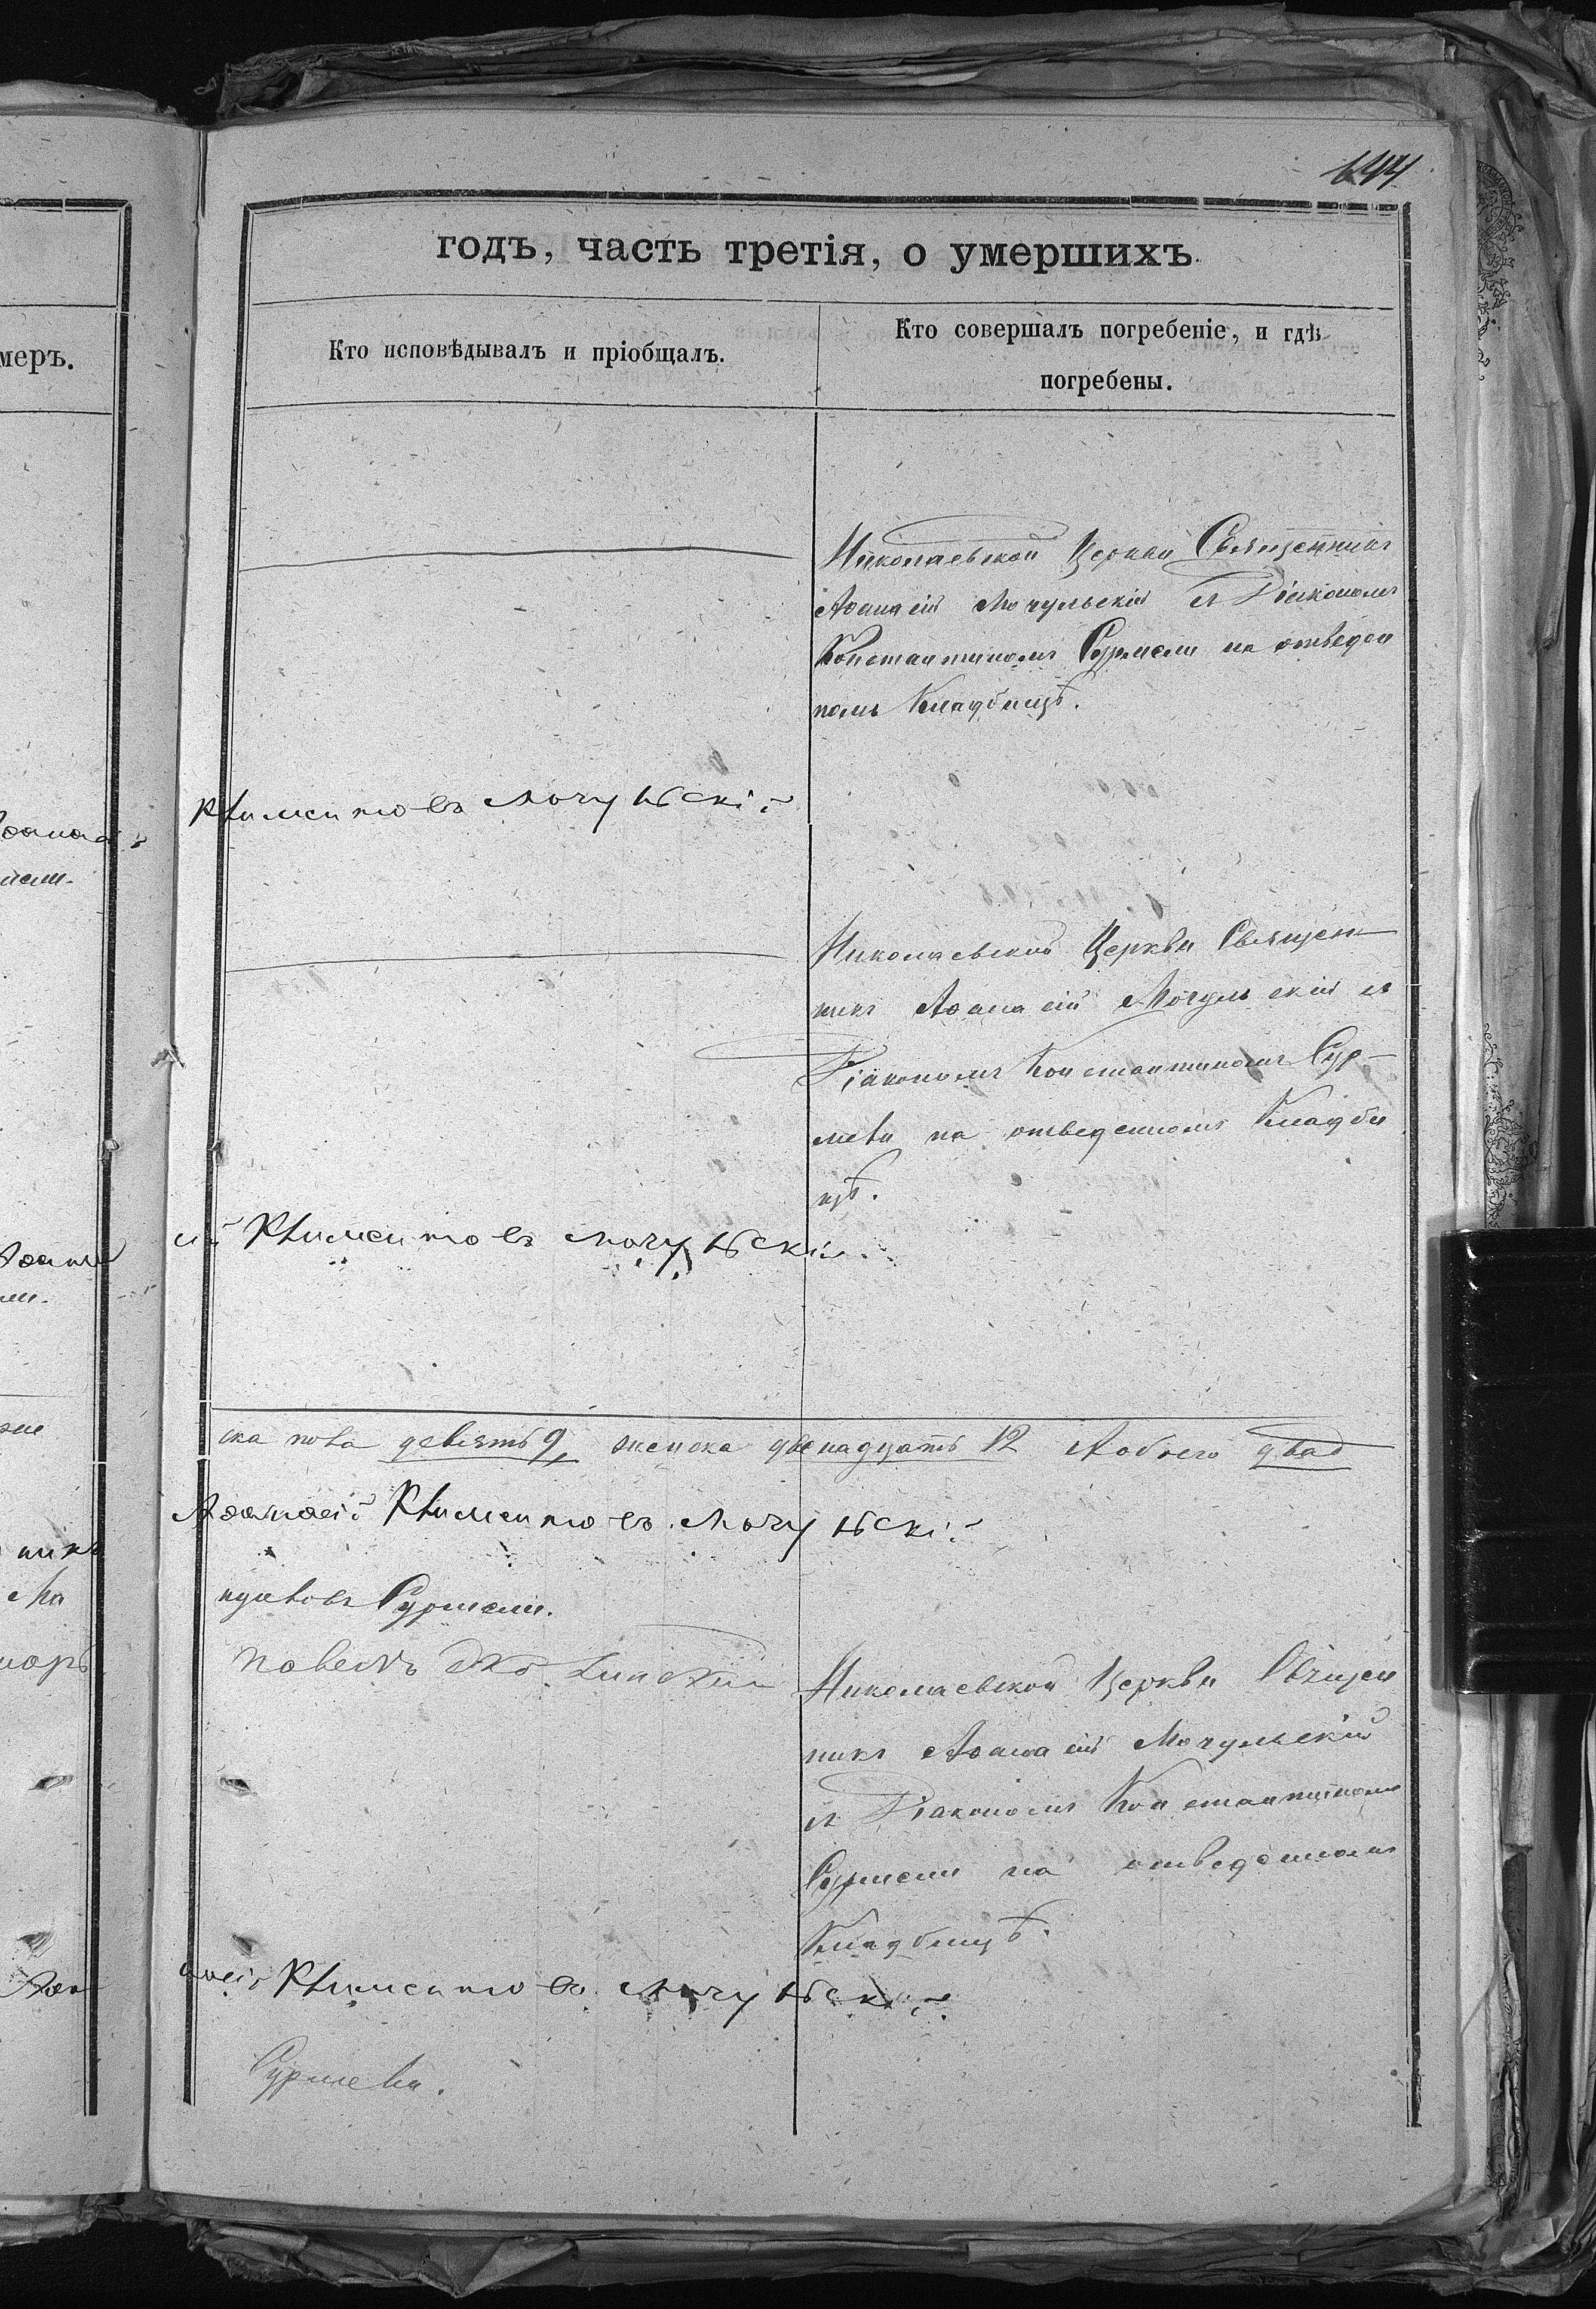 644
годъ, часть третія, о умершихъ
меръ.
Кто исповѣдывалъ и пріобщалъ.
Кто совершалъ погребеніе, и гдѣ
погребены.
Николаевской Церкви Священникъ
Аѳанасій Мочульскій съ Діакономъ
Константиномъ Сурмели на отведен
номъ Кладбищѣ.
Климентовъ Мочульскій
Николаевской Церкви Священ
никъ Аѳанасій Мочульскій съ
Діакономъ Константиномъ Сур-
мели на отведенномъ Кладби
щѣ.
Климентовъ Мочульскій
ска пола девять 9, женска двенадцать 12 Аобоего двад
Аѳанасій Климентовъ Мочульскій
Сурмели.
Николаевской Церкви Священ
никъ Аѳанасій Мочульскій
съ Діакономъ Константиномъ
Сурмели на отведенномъ
Кладбищѣ.
Климентовъ Мочульскій
Сурмели.